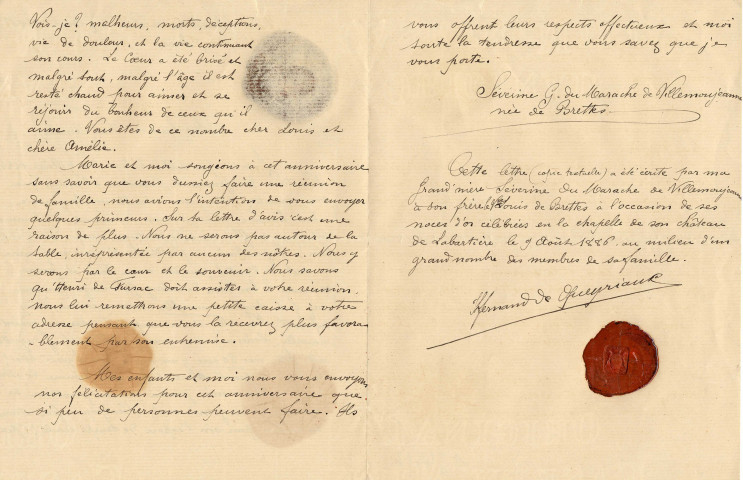 Vois-je? malheurs, morts, déceptions,
vie de douleur, et la vie continuant
son cours. Le Cœur a été brisé et
malgré tout, malgré l'âge il est
resté chaud pour aimer et se
réjouir du bonheur de ceux qu'il
aime. Vous êtes de ce nombre cher Louis et
chère Amélie.
Marie et moi songions à cet anniversaire
sans savoir que vous dussiez faire une réunion
de famille, nous avions l'intention de vous envoyer
quelques primeurs. Sur la lettre d'avis c'est une
raison de plus. Nous ne serons pas autour de la
table, irreprésentée par aucun des nôtres. Nous y
serons par le cœur et le souvenir. Nous savons
qu'Henri de doit assister à votre réunion
nous lui remettrons une petite caisse à votre
adresse pensant que vous la recevrez plus favora-
-blement par son entremise.
Mes enfants et moi nous vous envoyons
nos félicitations pour cet anniversaire que
si peu de personnes peuvent faire. Ils
vous offrent leurs respects affectueux et moi
toute la tendresse que vous savez que je
vous porte.
Séverine G. du Marache de Villemoujeanne
née de Brettes
Cette lettre (copie textuelle) a été écrite par ma
Grand'mère Séverine du Marache de Villemoujeanne
à son frère Louis de Brettes à l'occasion de ses
noces d'or célébrées en la chapelle de son château
de Labartière le 9 Août 1886 au milieu d'un
grand nombre des membres de sa famille.
Fernand de